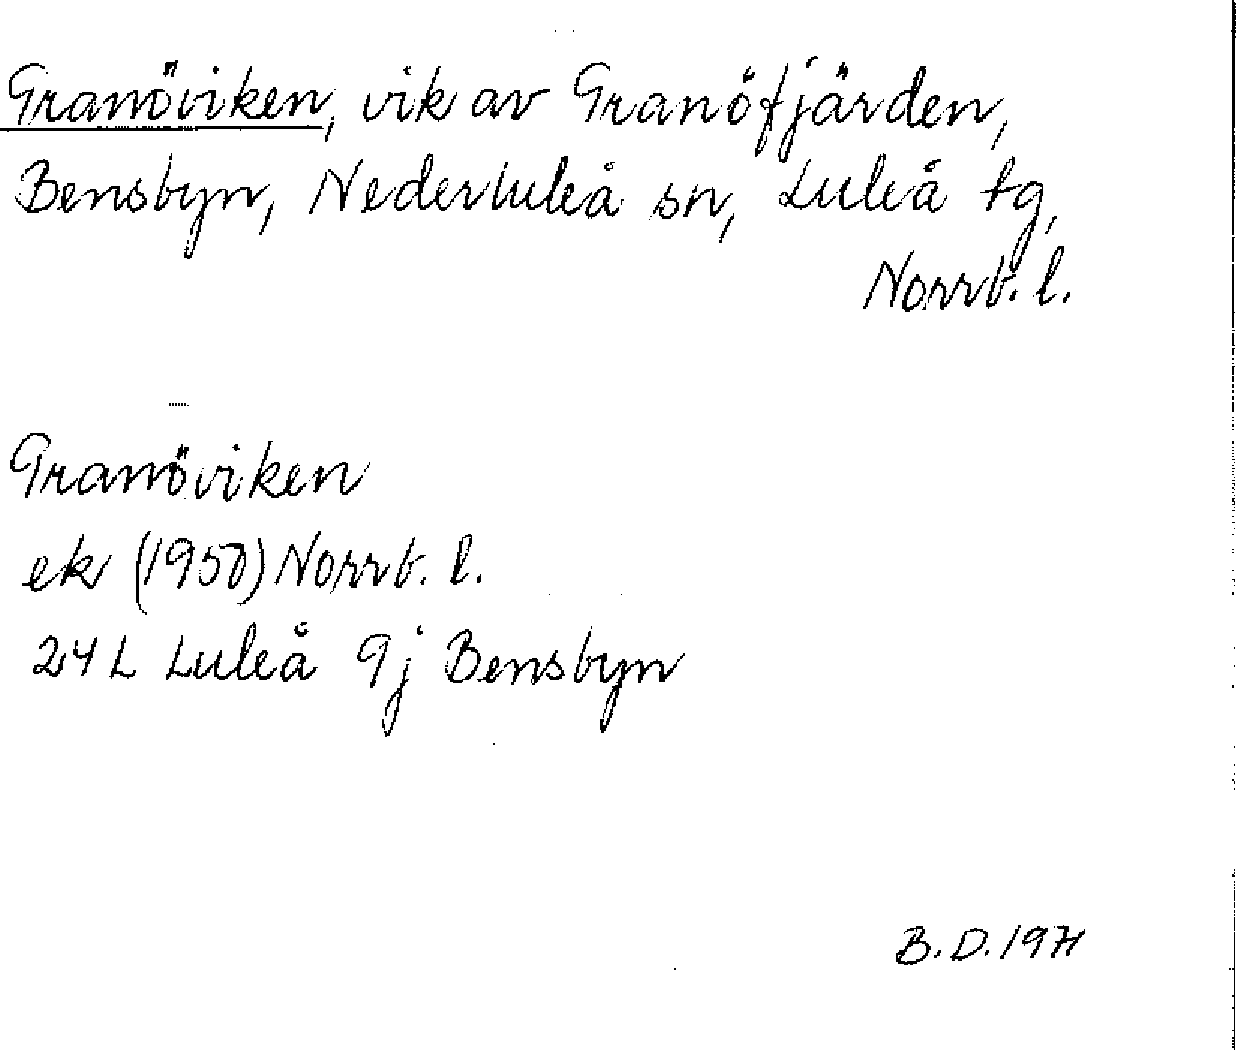 Granöviken, vik av Granöfjärden,
Bensbyn, Nederluleå sn, Luleå tg,
Norrb. l.
Granöviken
ek (1950) Norrb. l.
24 L Luleå 9j Bensbyn
B.D. 1971